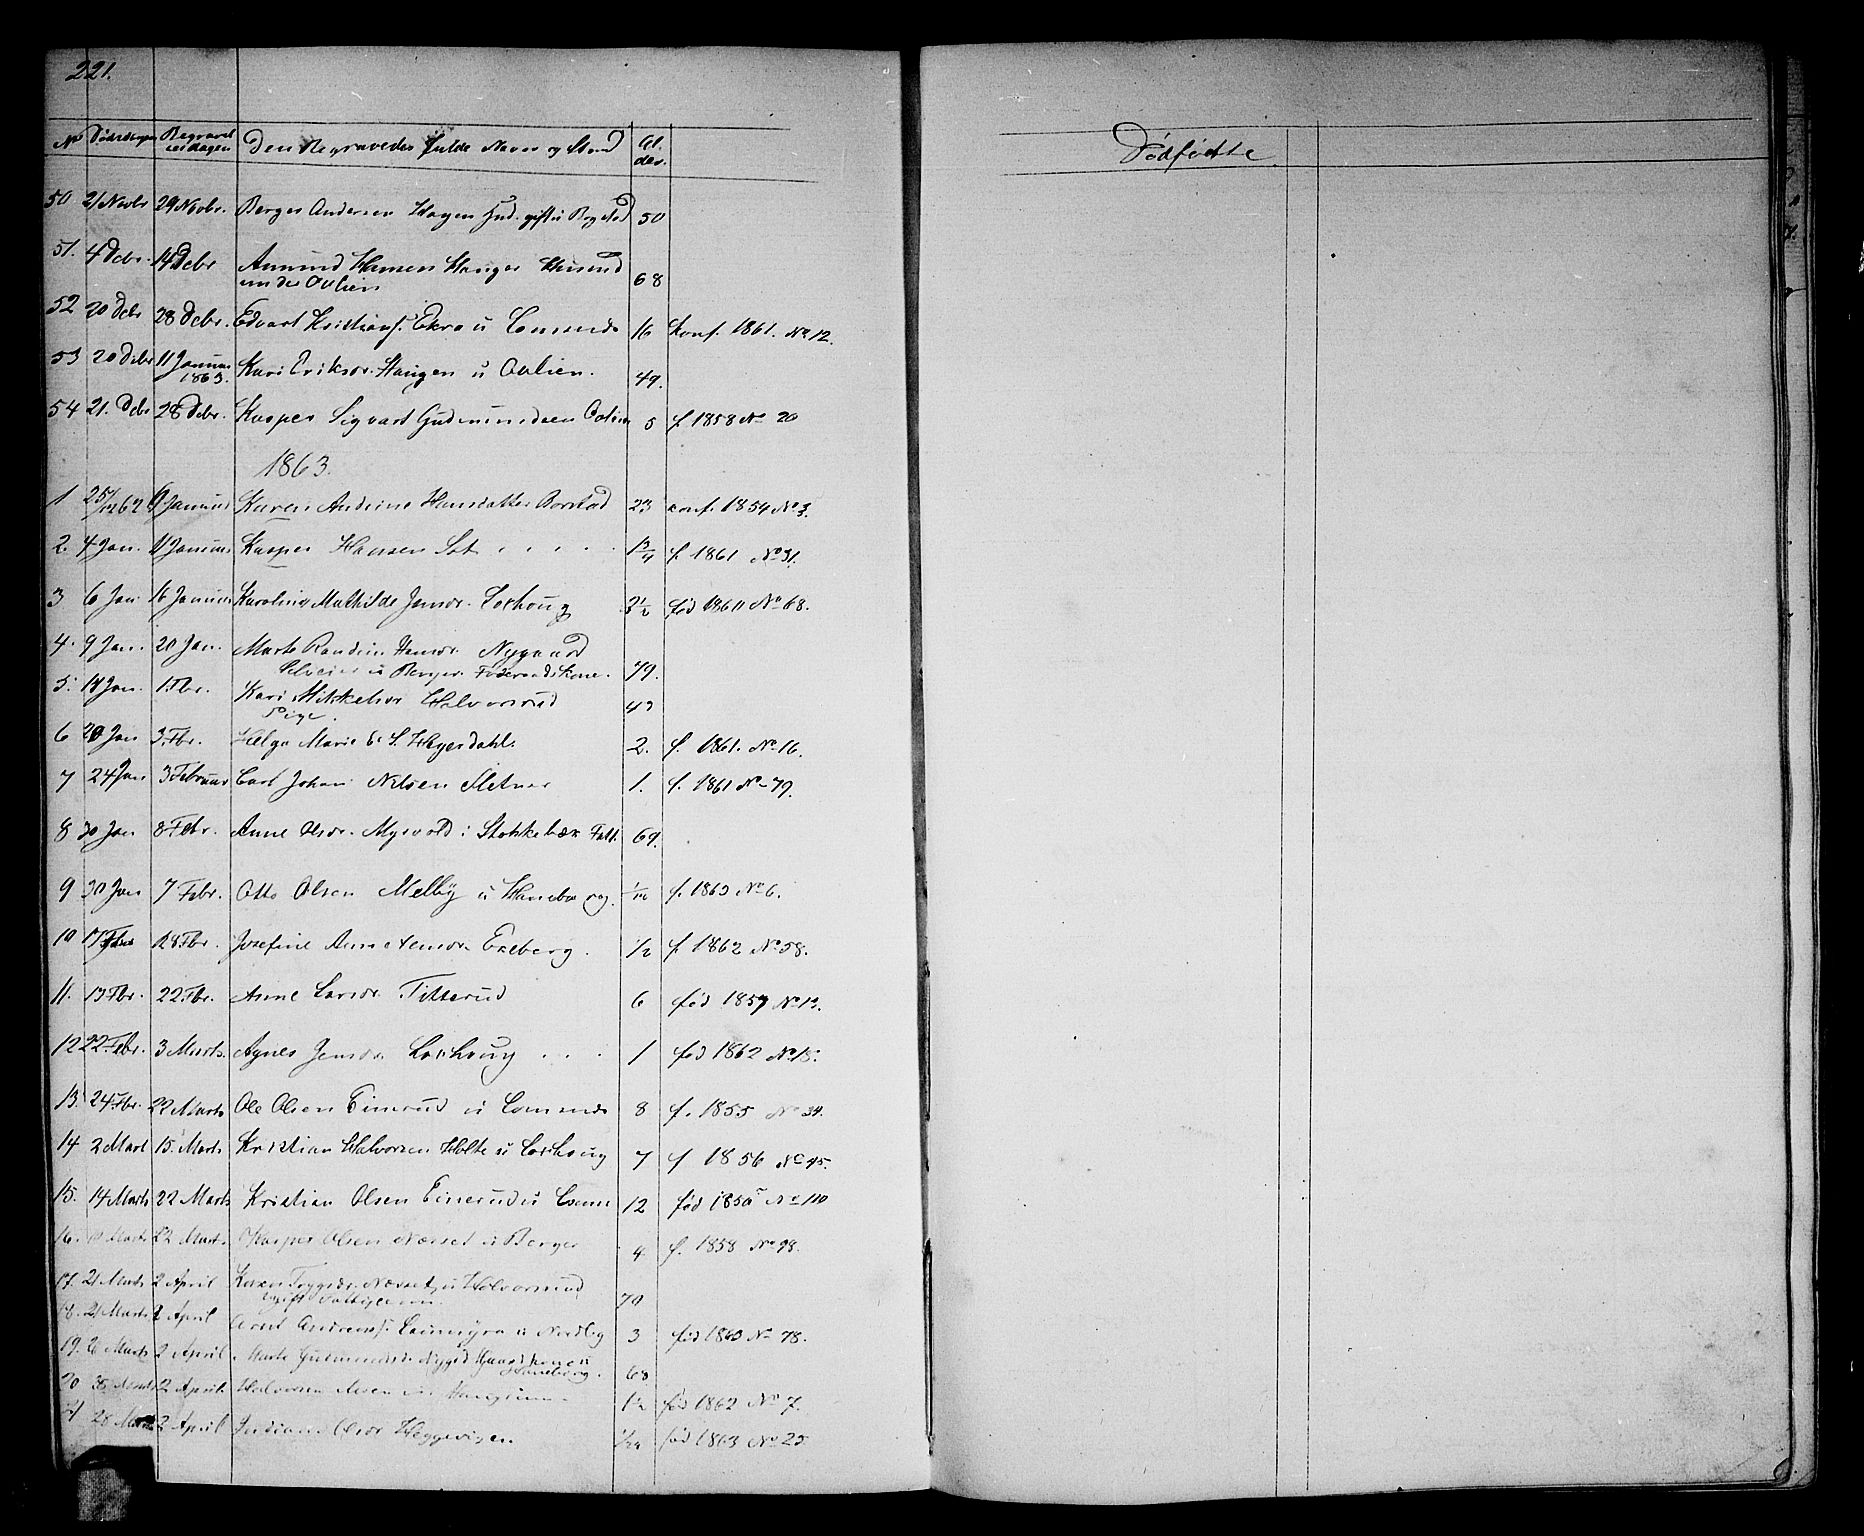 221.
No Dødsdagen Begravelsesdagen Den Begravedes fulde Navn og Stand Alder.
50 21 Novbr 29 Novbr. Berger Andersen Hagen Gud. gift u Bogstad 50
51. 4 Decbr. 14 Decbr Amund Hansen Hauger Husmd
under Ovlien 68
52 20 Decbr 28 Decbr. Edvart Kristians. Ekra u 16 konf. 1861. No 12.
53 20 Decbr 11 Januar
1863. Kari Eriksdr. Haugen u Ovlien. 49.
54 21. Decbr 28 Decbr. Kasper Sigvart Gudmundsen 5 f. 1858 No 20
1863.
1 25/12 62 Januar Karen Andrine Hansdatter Borstad 23 konf. 1854 No 3.
2. 4 Jan. 11 Januar Kasper Hansen 1 3/4 f. 1861 No 31.
3 6 Jan 16 Januar Karoline Mathilde Jensdr. Loshoug 2 1/2 fød 1860 No 68.
4. 9 Jan. 20 Jan. Marte Randine Hansdr. Nygaard
Selveier u Berger Føderaadskone. 79.
5. 18 Jan. 1. Fbr. Kari Mikkelsdr Halvorsrud
Pige. 42
6 20 Jan 3. Fbr. Helga Marie E. S. Heyerdahl. 2. f. 1861. No 16.
7 24 Jan 3 Februar Carl Johan Nilsen Sletner 1. f. 1861 No 79.
8 30 Jan 8 Febr. Anne Olsdr. Myrvold i Stokkebæk Fatt. 69.
9 30 Jan 7 Febr. Otto Olsen Melby u Haneborg. f. 1863 No 6.
10 17 Fbr 28. Fbr. Josefine Anne Jensdr. Eneberg. 1/2 f. 1862 No 58.
11. 13 Fbr. 22. Fbr. Anne Larsdr. Titterud 6 fød 1857 No 13.
12 22 Febr. 3 Marts. Agnes Jensdr. Loshoug 1 fød 1862 No 15.
13. 24 Fbr. 22 Marts Ole Olsen Einerud u 8 f. 1855 No 34.
14 2 Mart 15. Marts Kristian Halvorsen Holte u Loshoug 7 f 1856 No 45.
15. 14 Marts 22 Marts Kristian Olsen Einerud u 12 fød 1850 No 110
16. Marts 22 Marts. Kasper Olsen Næsset u Berger 4 f. 1858 No 98.
17. 21 Marts 2 April Karen Trygsdr. Næsset u Halvorsrud
gift Fattiglem. 70
18. 21 Marts 2 April Arnt Andreas. u Nordby 3 fød 1860 No 78.
19. 26 Marts 2 April Marte Gudmundsdr. Nygrd u
Haneborg. 68
20 Marts 2 April. Halvorsen 1 1/2 fød 1862 No 7.
21 28 Marts 2 April Olsdr Heggevigen fød 1863 No 25
Dødfødte.